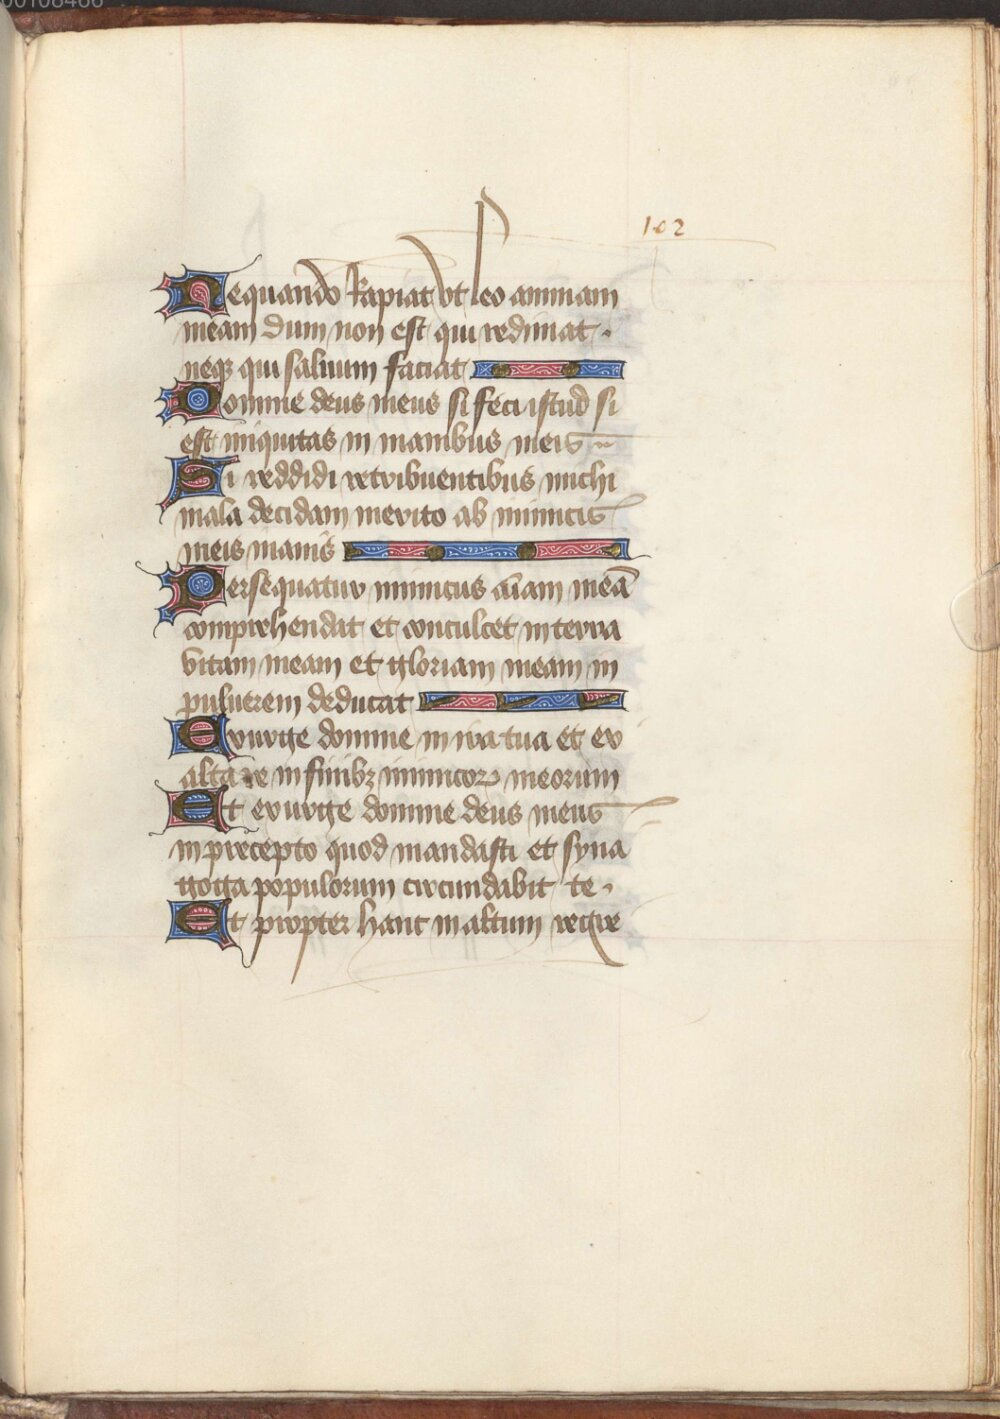 00108466
102
Nequando Rapiat vt leo animam
meam dum non est qui redimat.
neqꝫ qui saluum faciat
Domine deus meus si feci istud si
est iniquitas in manibus meis
Si reddidi retribuentibus michi
mala decidam merito ab inimicis
meis inanis
Persequatur inimicus aīam meā
comprehendat et conculcet in terra
vitam meam et gloriam meam in
puluerem deducat
Exurge domine in ira tua et ex
altare in finibꝫ inimicoꝝ meorum
Et exurge domine deus meus
in precepto quod mandasti et syna
goga populorum circundabit te.
Et propter hanc in altum regre